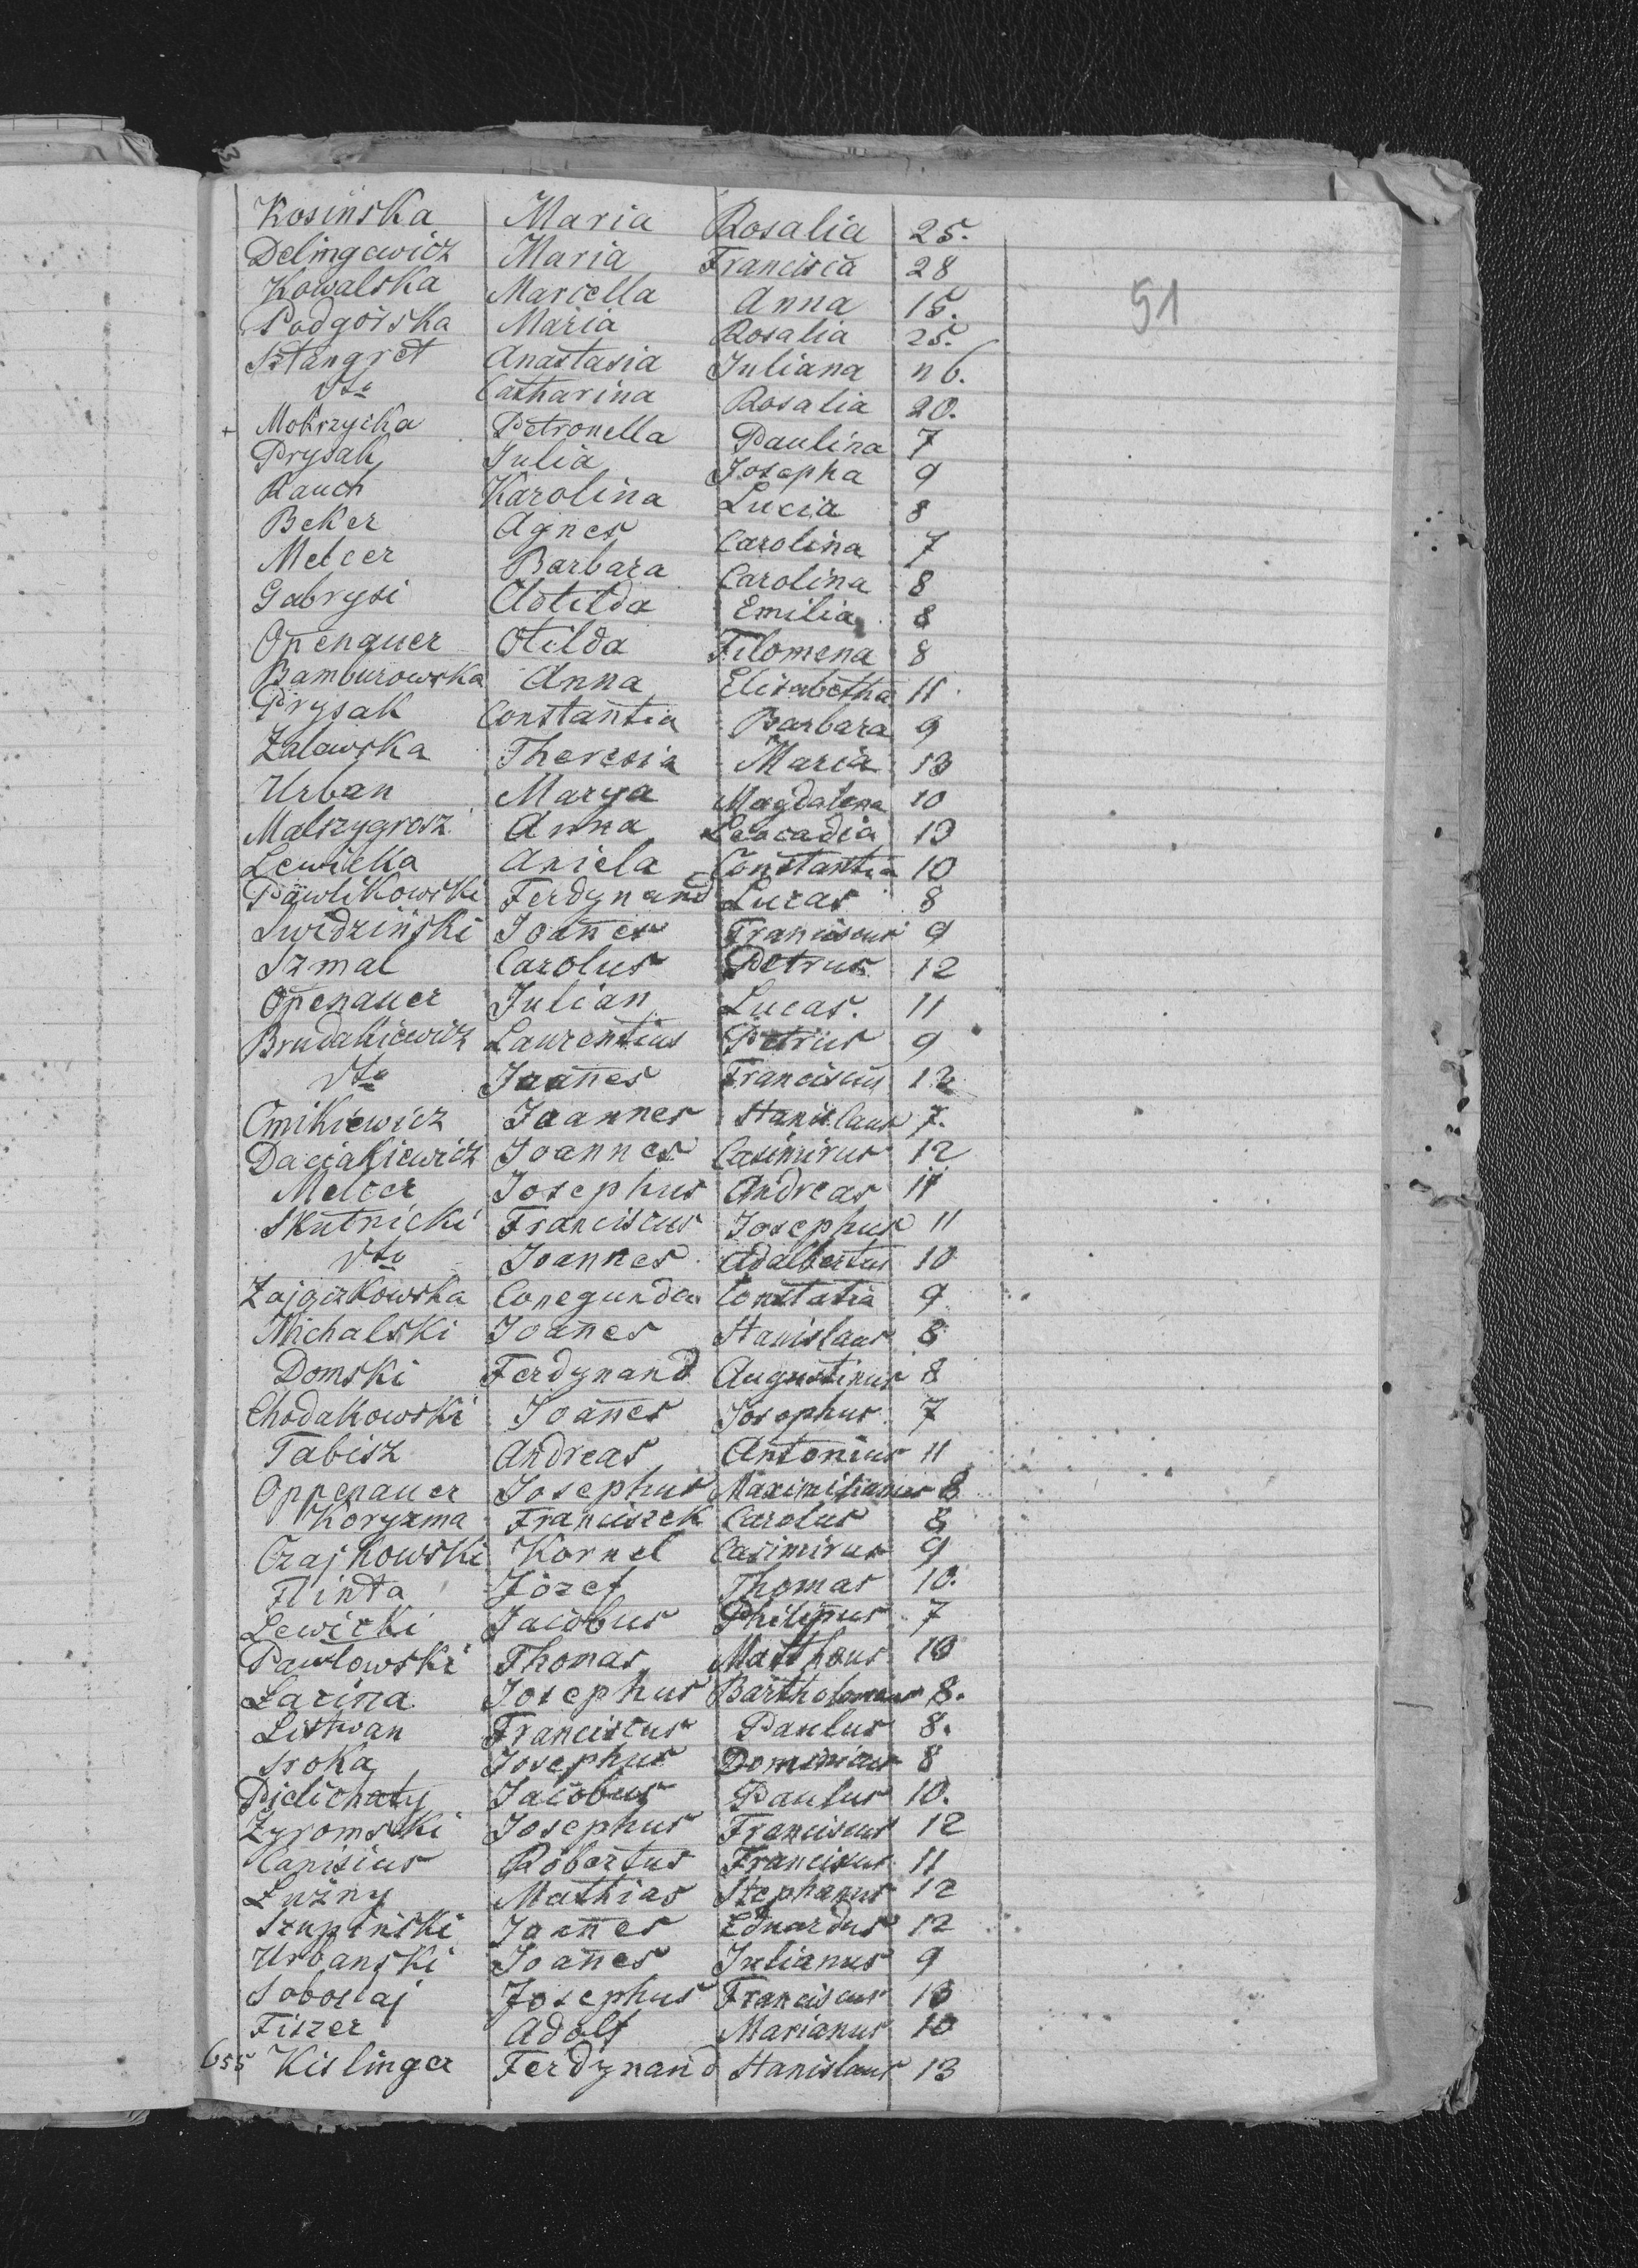 51
Kosińska Maria Rosalia 25.
Delingewicz Maria Francisca 28
Kowalska Marcella Anna 15.
Podgórska Maria Rosalia 25.
Sztangret Anastasia Juliana 16.
dto Catharina Rosalia 20.
+ Mokrzycka Petronella Paulina 7
Prysak Julia Josepha 9
Rauch Karolina Lucia 8
Beker Agnes Carolina 7
Melcer Barbara Carolina 8
Gabrysi Clotilda Emilia 8
Openauer Otilda Filomena 8
Bamburowska Anna Elisabetha 11
Prysak Constantia Barbara 9
Zalewska Theresia Maria 13
Urban Marya Magdalena 10
Malszygrosz Anna Leocadia 13
Lewicka Aniela Constantia 10
Pawlikowski Ferdynand Lucas 8
Swidziński Joañes Franciscus 9
Szmal Carolus Petrus 12
Openauer Julian Lucas. 11
Brudakiewicz Laurentius Petrus 9
dto Joañes Franciscus 12
Cmikiewicz Joannes Stanislaus 7.
Daciakiewicz Joannes Casimirus 12
Melcer Josephus Andreas 11
Skutnicki Franciscus Josephus 11
dto Joannes Adalbertus 10
Zajączkowska Conegunda Constatia 9
Michalski Joañes Stanislaus 8
Domski Ferdynand Augustinus 8
Chodakowski Joañes Josephus 7
Tabisz Andreas Antonius 11
Oppenauer Josephus Maximilianus 8
Koryzma Franciszek Carolus 8
Czajkowski Kornel Casimirus 9
Flinta Józef Thomas 10.
Lewicki Jacobus Philippus 7
Pawlowski Thomas Mattheus 10
Łazina Josephus Bartholomeus 8.
Listwan Franciscus Paulus 8.
Sroka Josephus Dominicus 8
Pielichaty Jacobus Paulus 10.
Zyromski Josephus Franciscus 12
Canisius Robertus Franciscus 11
Luźny Mathias Stephanus 12
Szupiński Joañes Eduardus 12
Urbanski Joañes Julianus 9
Sobolaj Josephus Franciscus 13
Fiszer Adolf Marianus 10
655 Kislinger Ferdynand Stanislaus 13